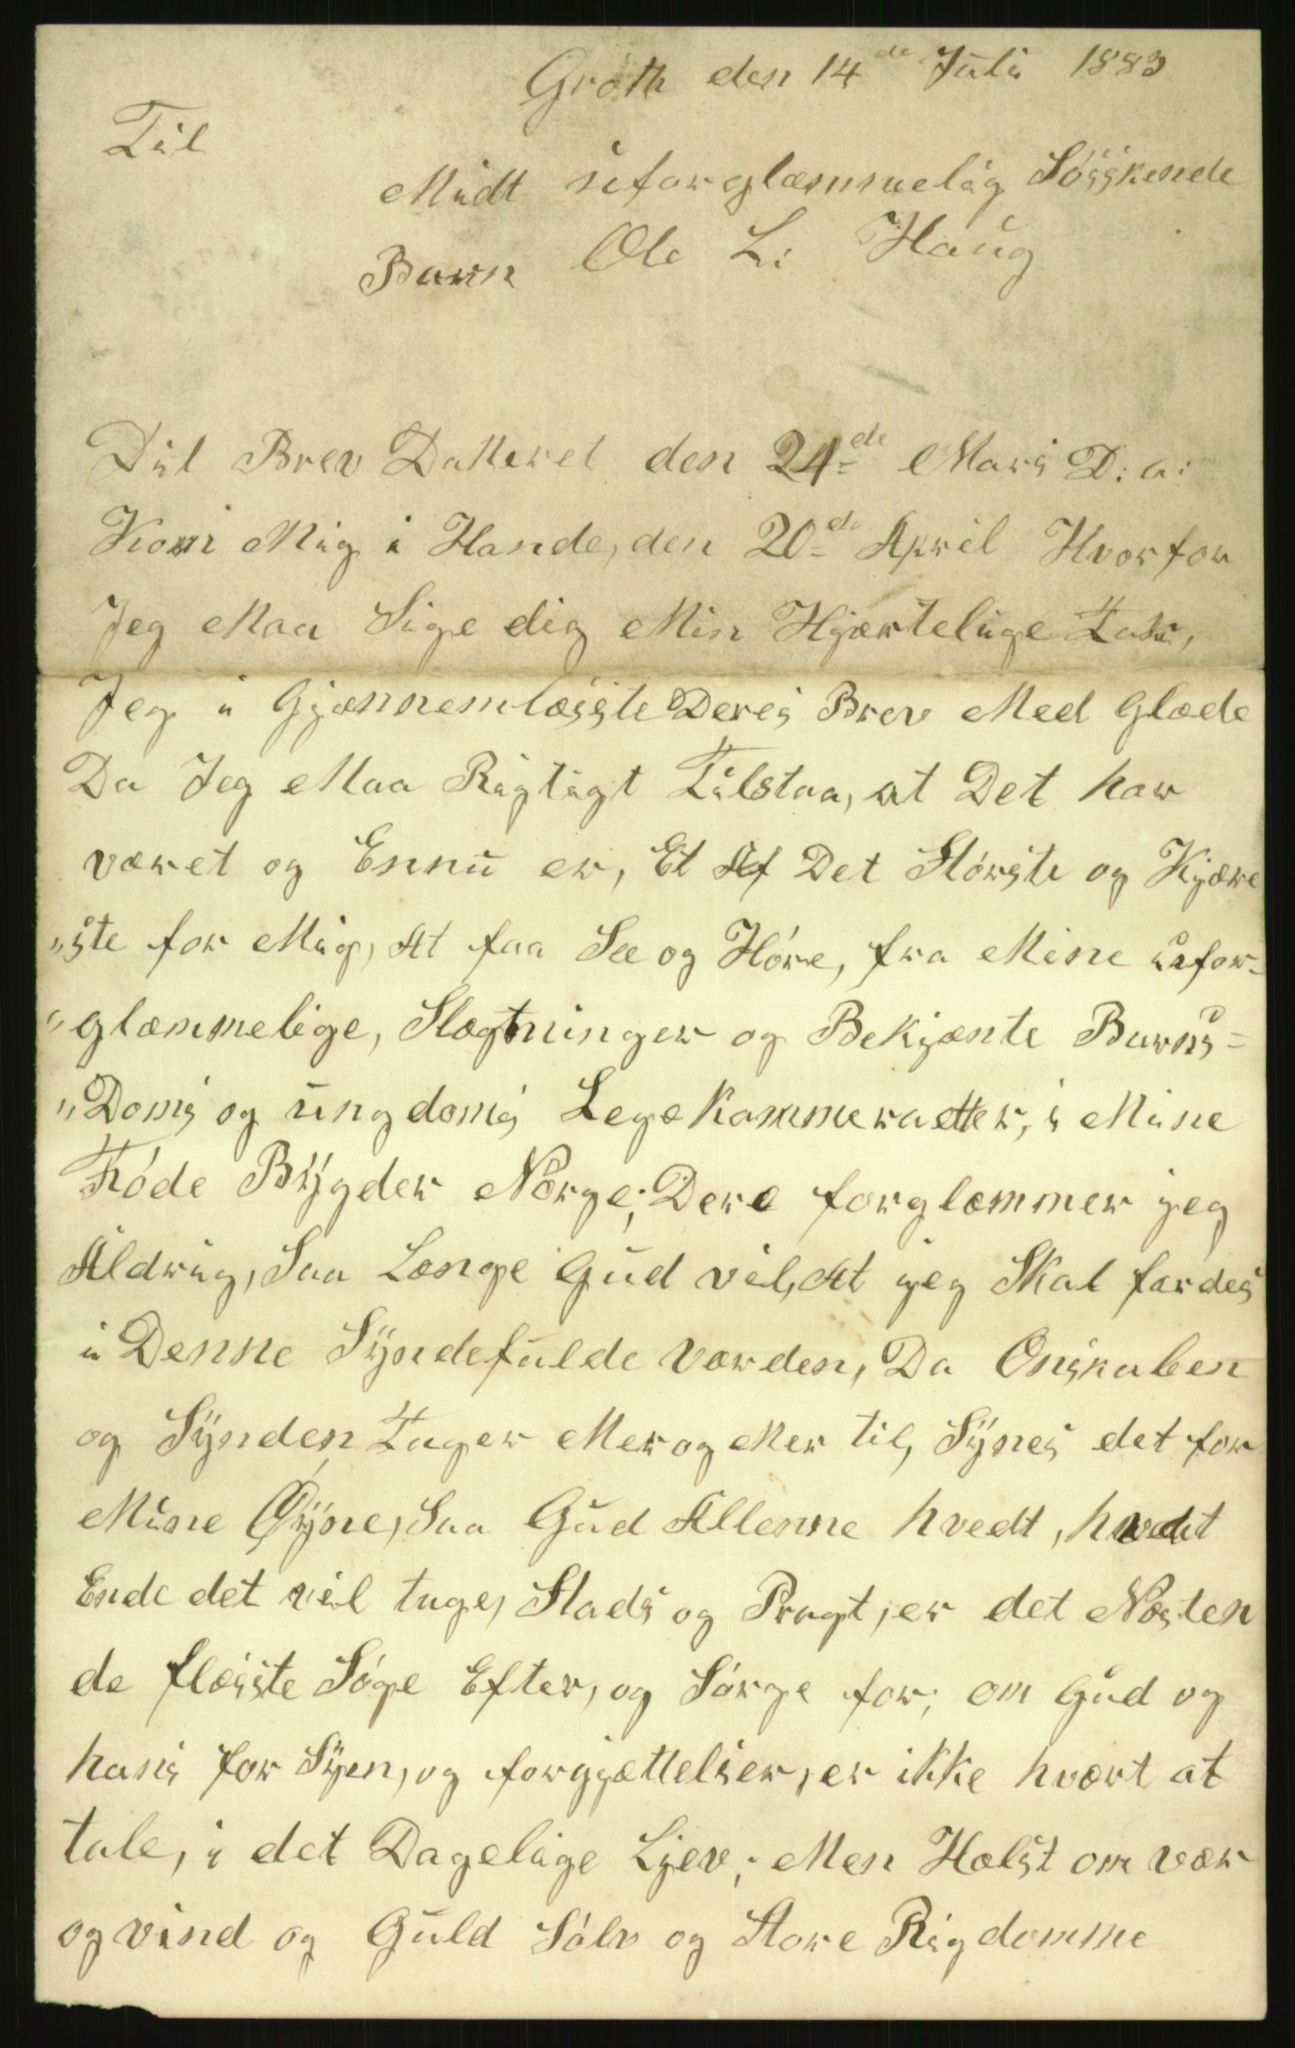 Groth den 14de Juli 1883
Til
Midt uforglæmmelig Sösskende
Barn Ole L: Haug
Dit Brev Datteret den 24de Mars D: a:
Kom Mig i Hande, den 20de April Hvorfor
Jeg Maa Sige dig Min Hjærtelige Tak,
Jeg i Gjænnemlæsste Deres Brev Med Glæde
Da Jeg Maa Rigtigt Tilstaa, at Det har
været og Ennu er, Et Af Det Störste og Kjære
"ste for Mig, At faa See og Höre, fra Mine ufor-
"glæmmelige, Slægtninger og Bekjænte Barns=
"Doms og ungdoms Legekammeratter, i Mine
Föde Bÿgder Norge; Dere forglæmmer jeg
Aldrig, Saa Længe Gud vil, At jeg Skal færdes
i Denne Sÿndefulde værden, Da Onskaben
og Sÿnden Tager Mer og Mer til, Sÿnes det for
Mine Øÿne, Saa Gud Allenne hvedt, hvadt
Ende det vil tage, Stads og Pragt, er det Næsten
de flæsste Söge Efter, og Sörge for; om Gud og
hans for Sÿen, og forgjættelser, er ikke hvært at
tale, i det Dagelige Ljev; Men Hælst om vær
og vind og Guld Sölv og Store Rigdomme